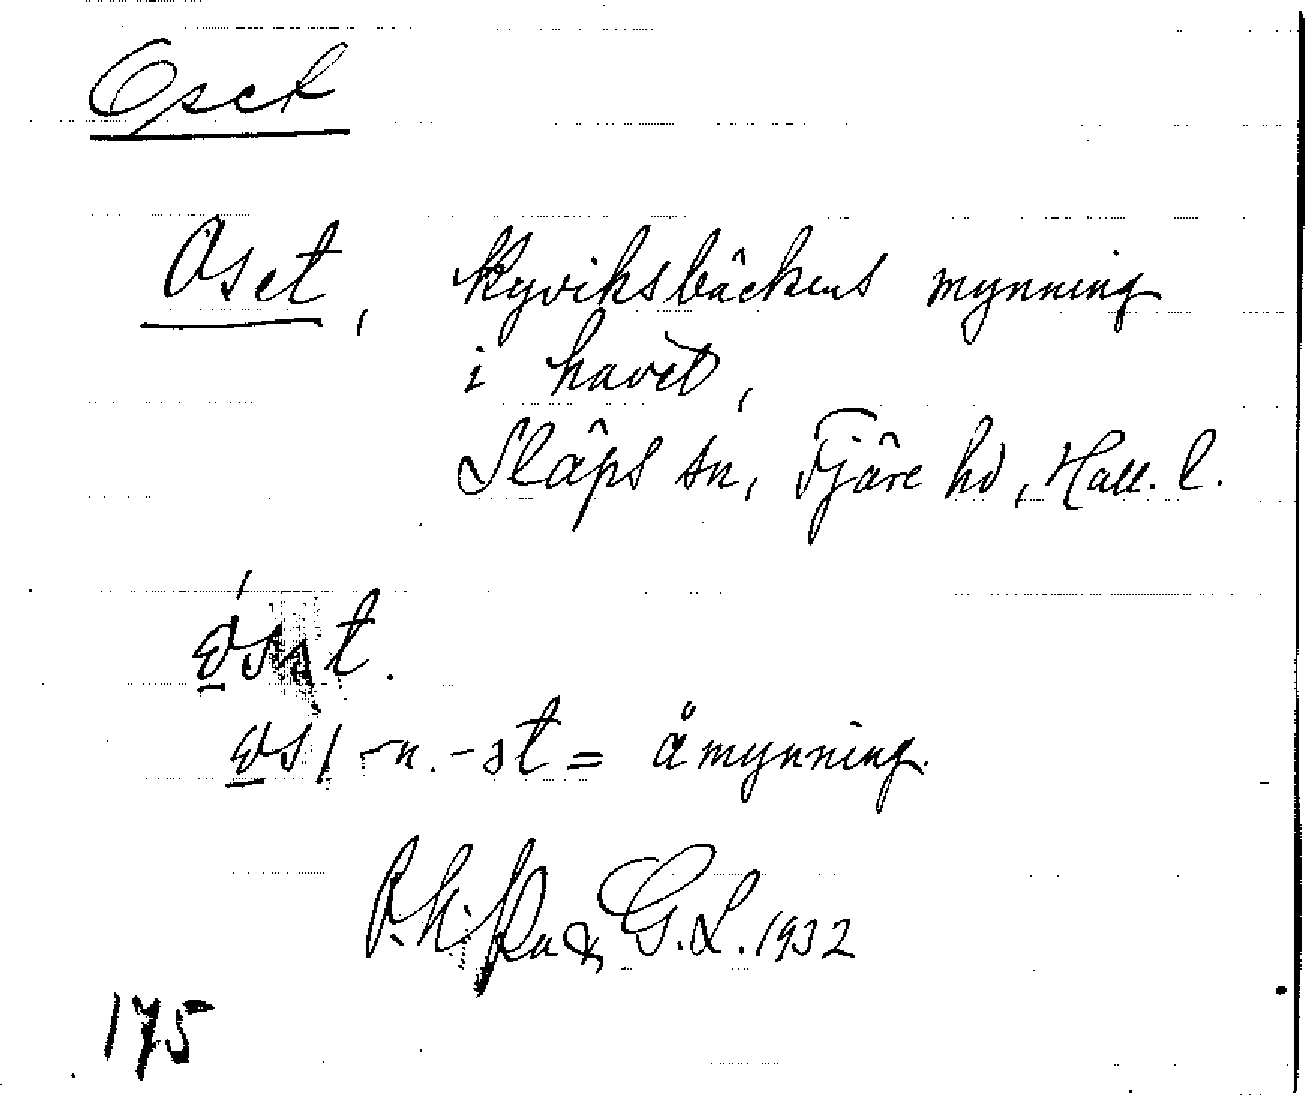 Oset
Oset, Kyviksbäckens mynning
i havet,
Släps sn, Fjäre hd, Hall. l.
t.
-n. -st = åmynning
G.L. 1932
175